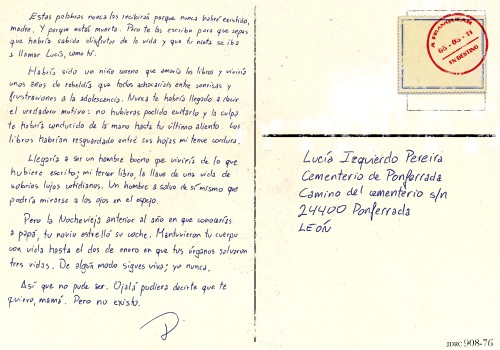 Estas palabras nunca las recibirás porque nunca habré existido,
madre. Y porque estás muerta. Pero te las escribo para que sepas
que habría sabido disfrutar de la vida y que tu nieta se iba
a llamar Lucía, como tú.
Habría sido un niño sereno que amaría los libros y viviría
unos años de rebeldía que todos achacarían entre sonrisas y
frustraciones a la adolescencia. Nunca te habría llegado a
el verdadero motivo: no hubieras podido evitarlo y la culpa
te habría conducido de la mano hasta tu último aliento. Los
libros habrían resguardado entre sus hojas mi tenue cordura.
Llegaría a ser un hombre bueno que viviría de lo que
hubiere escrito; mi tercer libro, la llave de una vida de
sobrios lujos cotidianos. Un hombre a salvo de sí mismo que
podría mirarse a los ojos en el espejo.
Pero la Nochevieja anterior al año en que conocerías
a papá, tu novio estrelló su coche. Mantuvieron tu cuerpo
con vida hasta el dos de enero en que tus órganos salvaron
tres vidas. De algún modo sigues viva; yo nunca.
Así que no pude ser. Ojalá pudiera decirte que te
quiero, mamá. Pero no existo.
A FRANQUEAR
05-05-11
EN DESTINO
Lucía Izquierdo Pereira
Cementerio de Ponferrada
Camino del cementerio s/n
24400 Ponferrada
LEÓN
JDRC 908-76